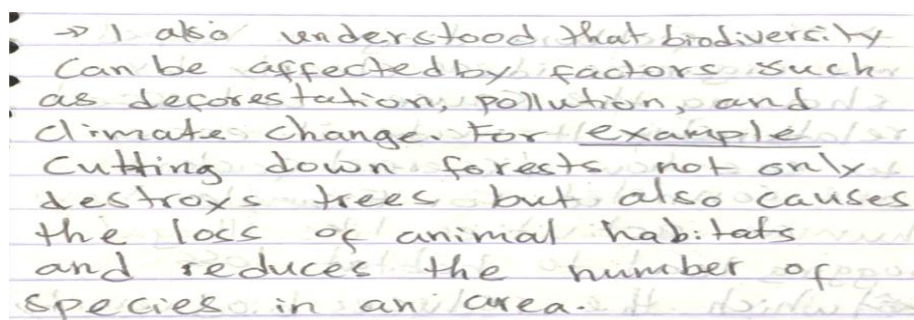 → I also understood that biodiversity
can be affected by factors such
as deforestation, pollution, and
climate change. For example
cutting down forests not only
destroys trees but also causes
the loss of animal habitats
and reduces the number of
species in an area.